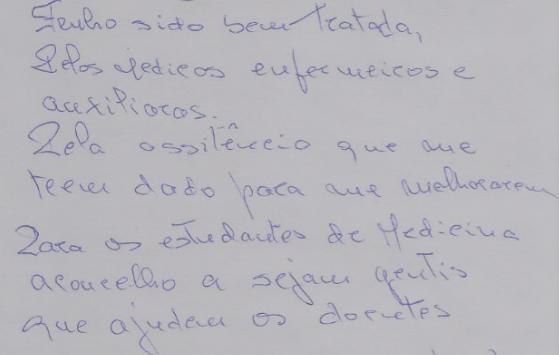 Tenho sido bem tratada,
Pelos medicos enfermeiros e
auxiliares.
Pela assitência que me
teem dado para me melhorarem
Para os estudantes de Medicina
aconcelho a sejam gentis
que ajudem os doentes